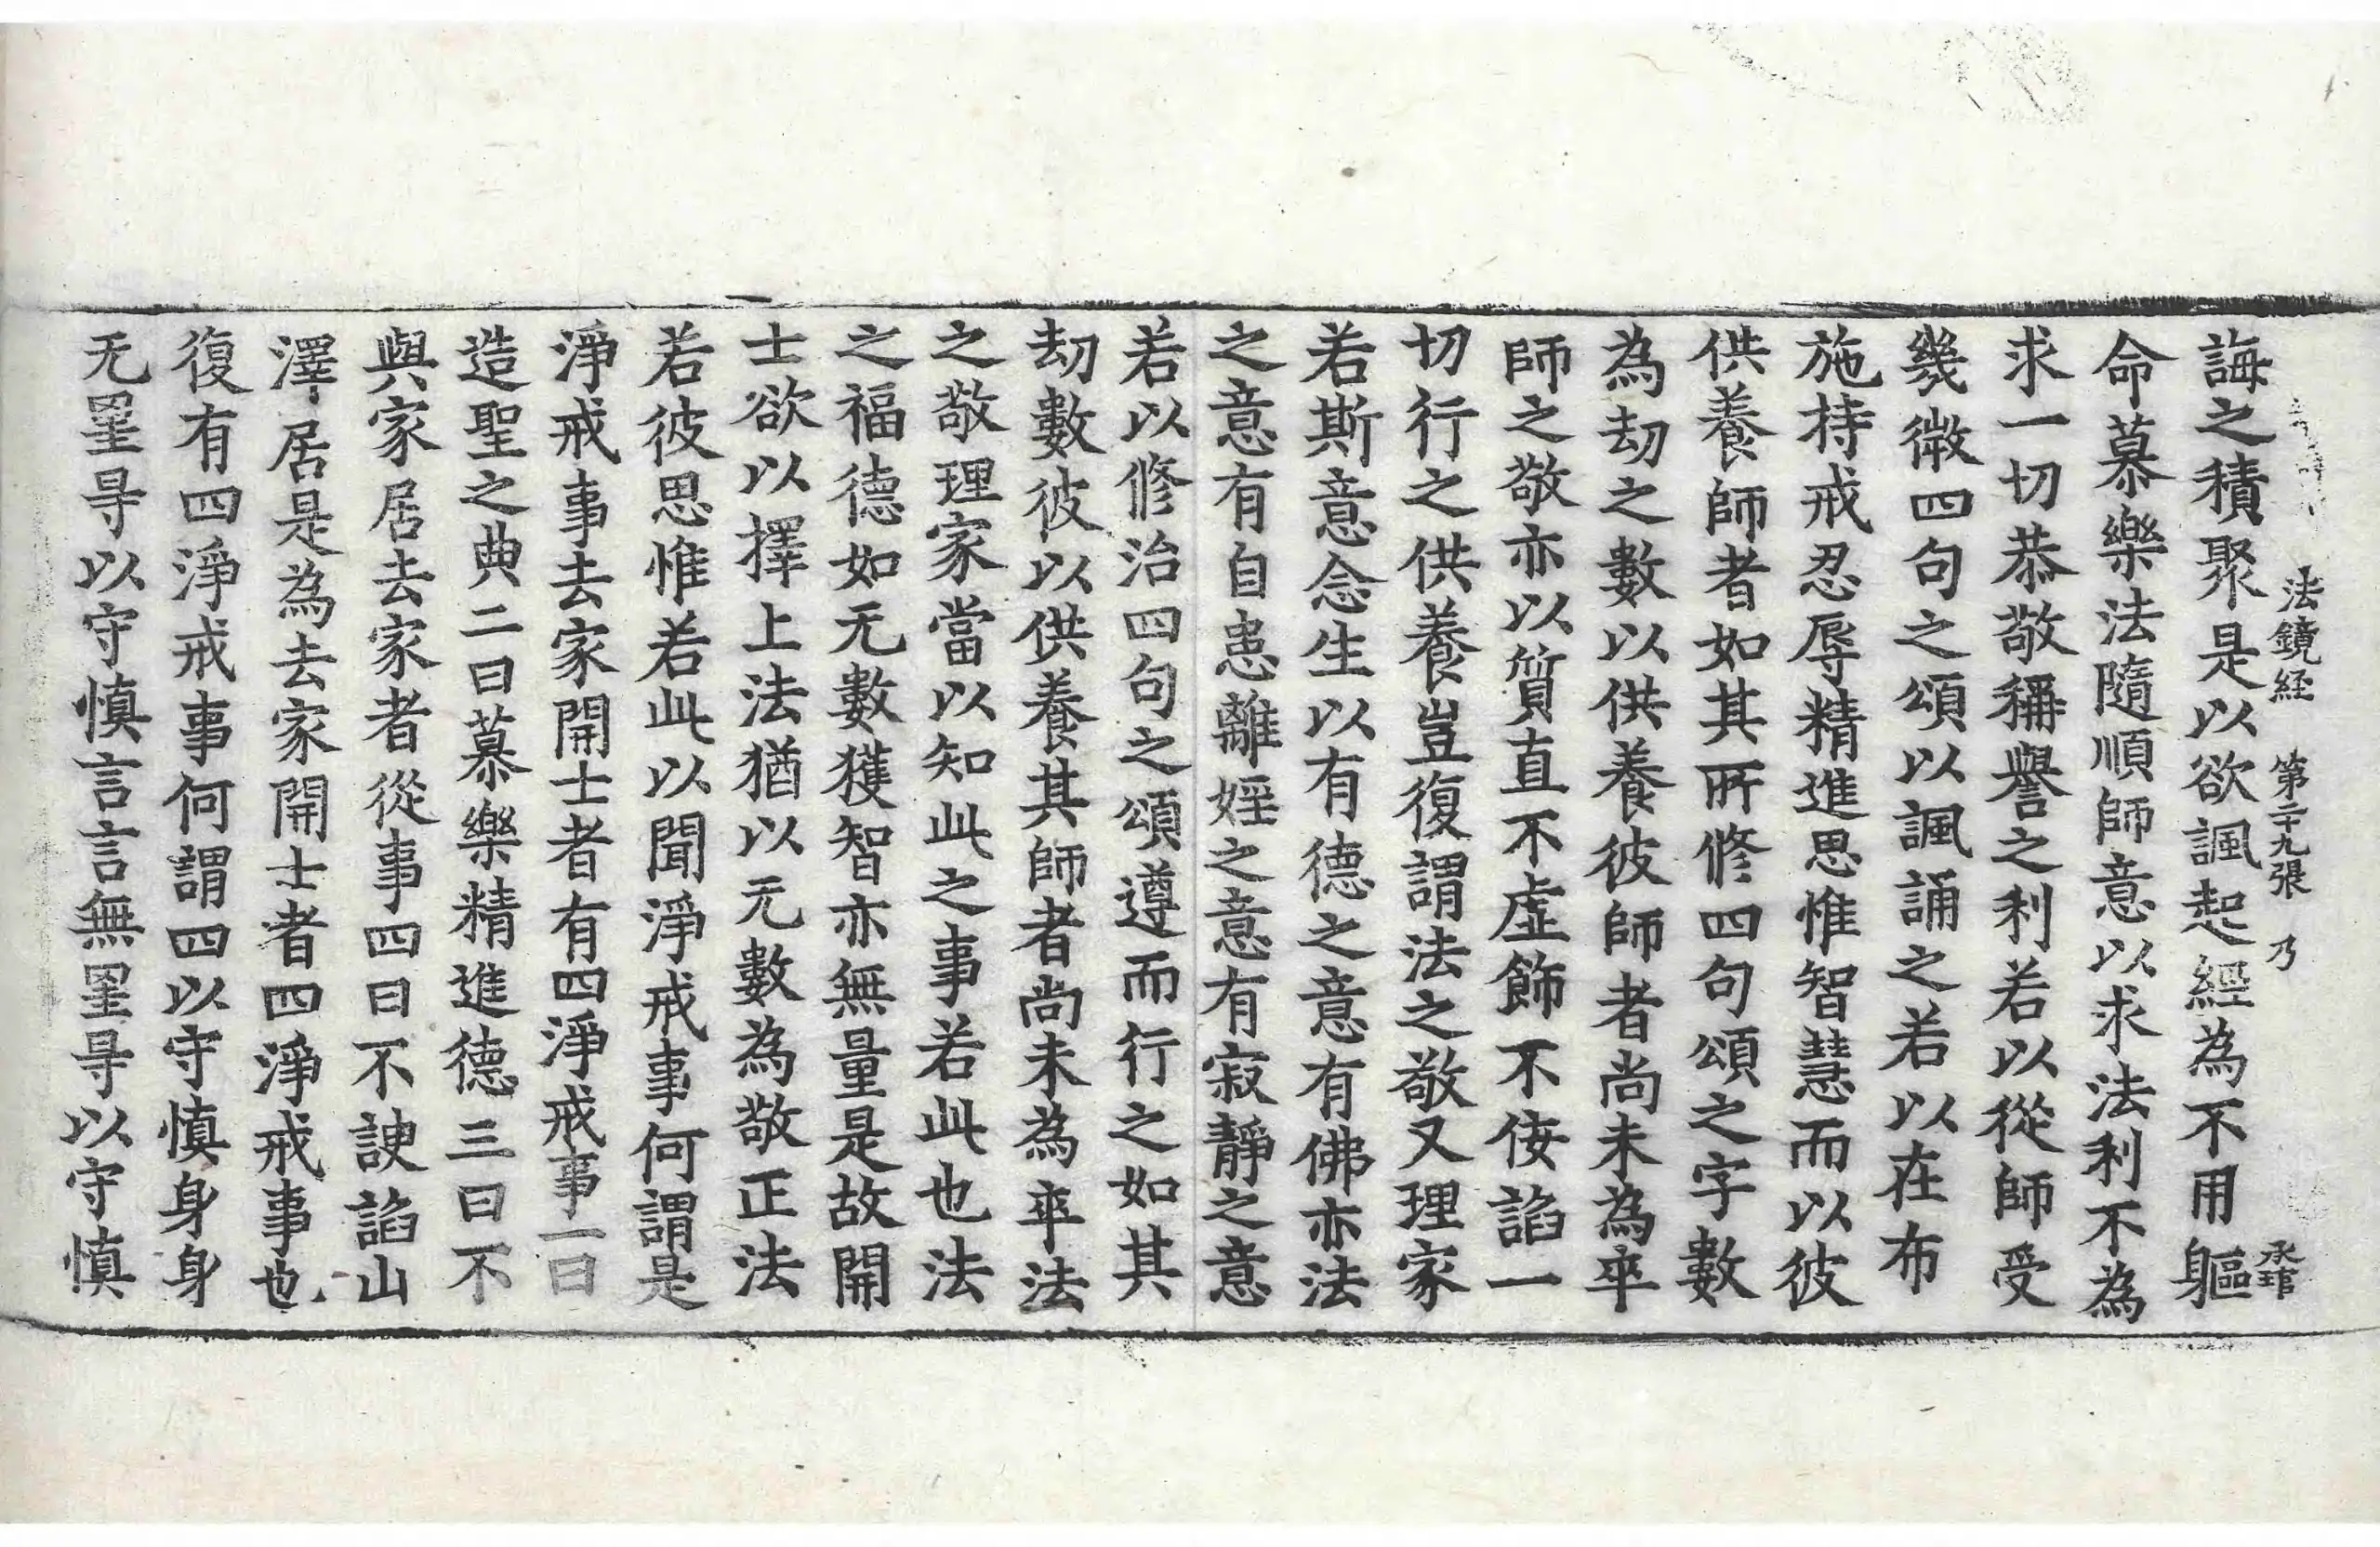 法鏡經 第二十九張 乃 永琯
誨之積聚是以欲諷起經為不用軀
命慕樂法隨順師意以求法利不為
求一切恭敬稱譽之利若以從師受
幾微四句之頌以諷誦之若以在布
施持戒忍辱精進思惟智慧而以彼
供養師者如其所修四句頌之字數
為劫之數以供養彼師者尚未為卒
師之敬亦以質直不虛飾不侫諂一
切行之供養豈復謂法之敬又理家
若斯意念生以有德之意有佛亦法
之意有自患離婬之意有寂靜之意
若以修治四句之頌遵而行之如其
劫數彼以供養其師者尚未為卒法
之敬理家當以知此之事若此也法
之福德如无數獲智亦無量是故開
士欲以擇上法猶以无數為敬正法
若彼思惟若此以聞淨戒事何謂是
淨戒事去家開士者有四淨戒事一曰
造聖之典二曰慕樂精進德三曰不
與家居去家者從事四曰不諛諂山
澤居是為去家開士者四淨戒事也
復有四淨戒事何謂四以守慎身身
无罣㝵以守慎言言無罣㝵以守慎